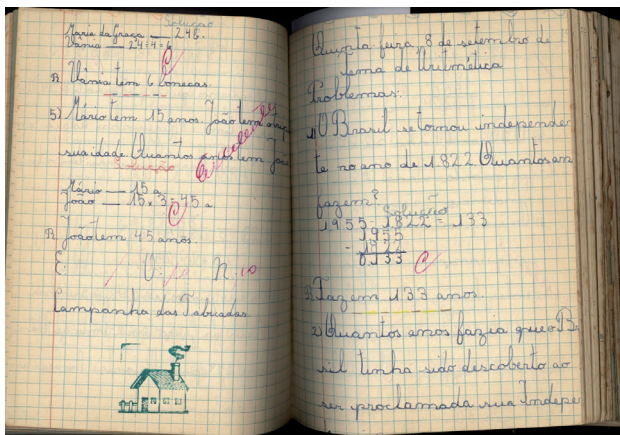 Solução
Maria da Graça — 24 b.
Vânia — 24 ÷ 4 = 6
C
R. Vânia tem 6 bonecas.
5) Mário tem 15 anos. João tem o triplo
sua idade. Quantos anos tem João
Solução
Mário — 15 a
João — 15 x 3 = 45 a
C
R. João tem 45 anos.
E. O. N. 10
Campanha das Tabuadas
Quinta feira, 8 de setembro de
Tema de Aritmética
Problemas:
1) O Brasil se tornou independen
te no ano de 1.822 Quantos an
fazem?
Solução
1955 - 1822 = 133
1955
- 1822
0133
C
R. Fazem 133 anos.
2) Quantos anos fazia que o B
sil tinha sido descoberto ao
ser proclamada sua Indepe